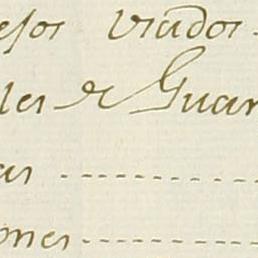 esos usados.
les de Guar
as ..........
ones ..........